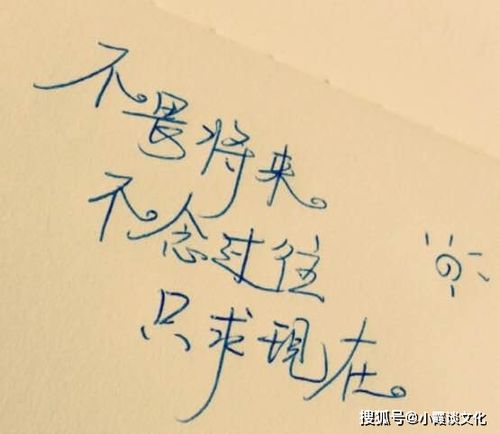 不畏将来。
不念过往
只求现在。
搜狐号@小霞谈文化